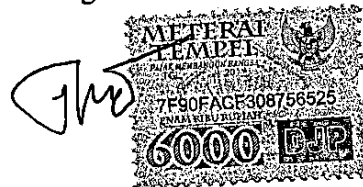 METERAI
TEMPEL
PAJAK MEMBANGUN BANGSA
7F90FACF308756525
ENAM RIBU RUPIAH
6000 DJP